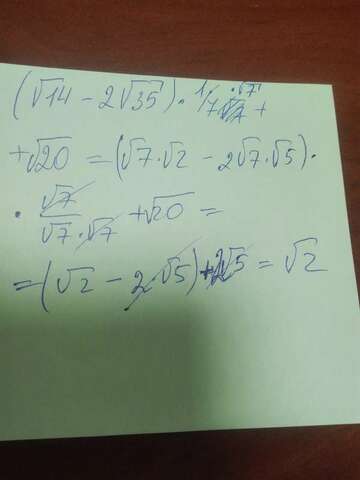 (√14 - 2√35) · 1/7 · √7 +
+√20 = (√7·√2 - 2√7·√5)·
· √7/(√7·√7) + √20 =
= (√2 - 2√5) + 2√5 = √2